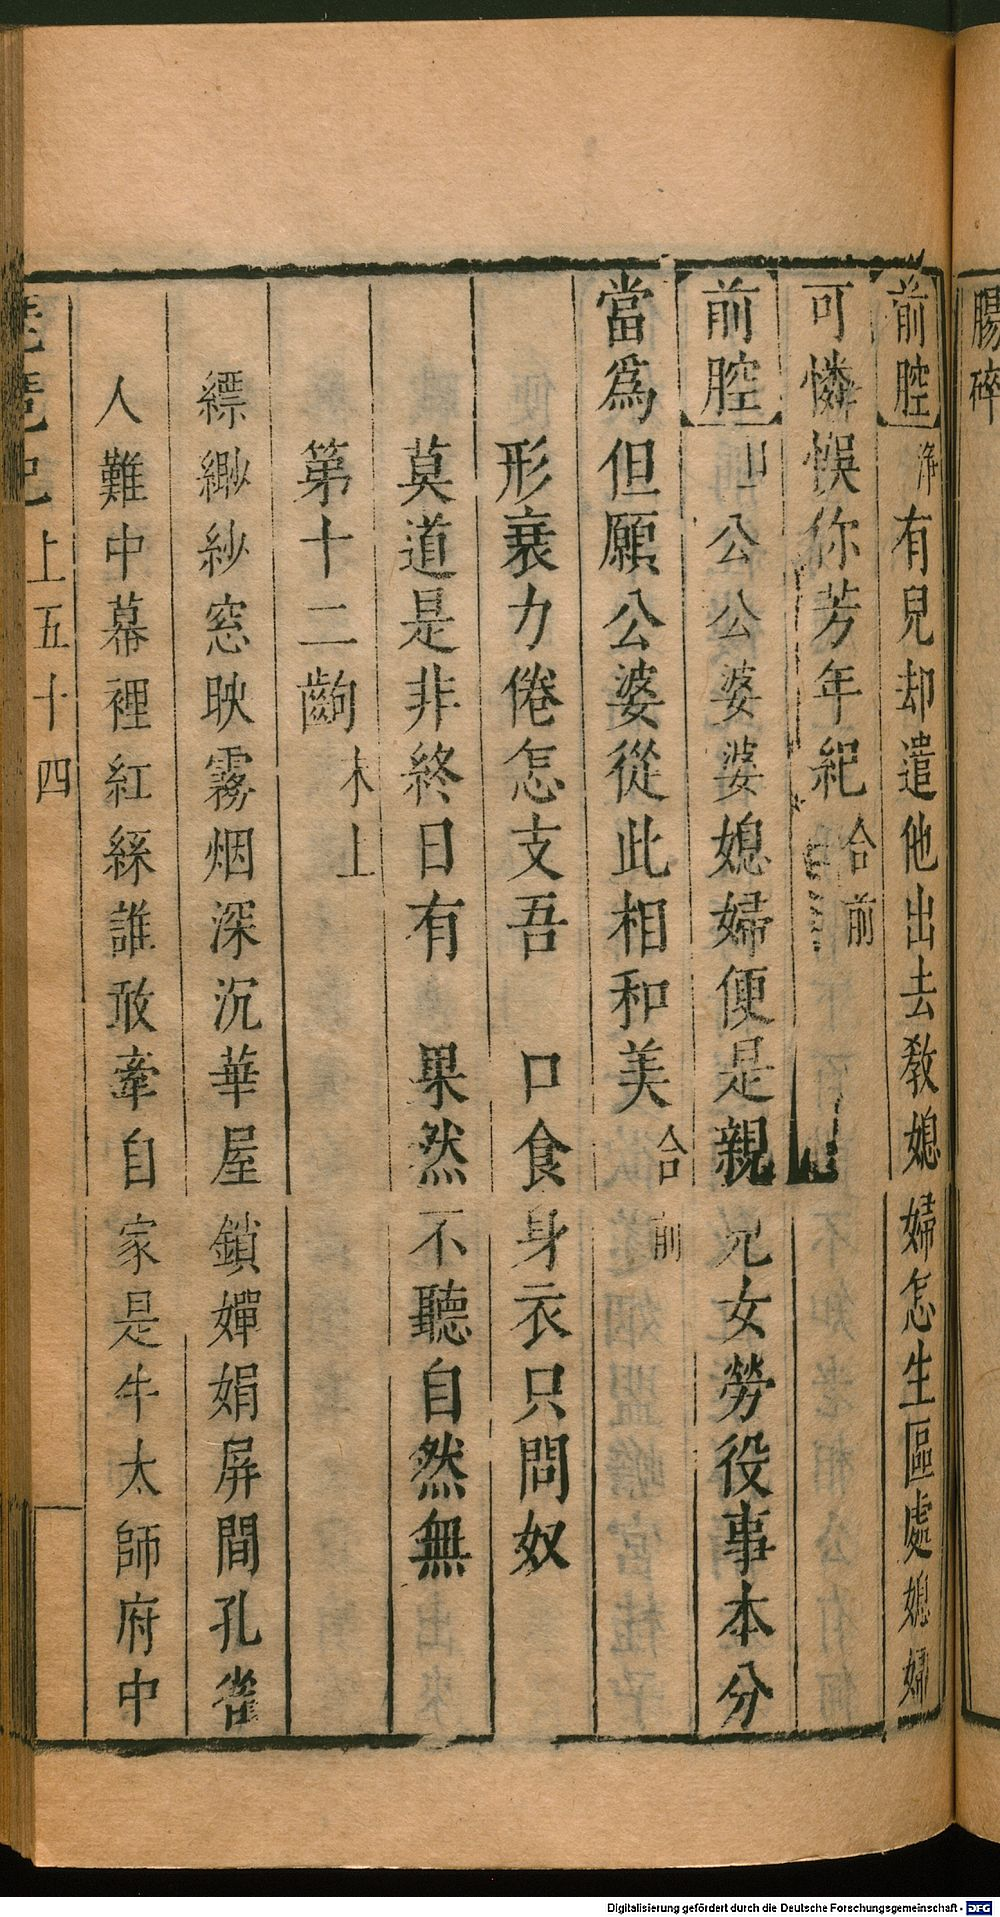 腸碎
前腔 淨 有兒却遣他出去教媳婦怎生區處媳婦
可憐悞你芳年紀 合前
前腔 公公婆婆媳婦便是親兒女勞役事本分
當爲但願公婆從此相和美 合前
形衰力倦怎支吾 口食身衣只問奴
莫道是非終日有 果然不聽自然無
第十二齣 末上
縹緲紗窓映霧烟深沉華屋鎖嬋娟屏間孔雀
人難中幕裡紅絲誰敢牽自家是牛太師府中
琵琶記 上五十四
Digitalisierung gefördert durch die Deutsche Forschungsgemeinschaft - DFG